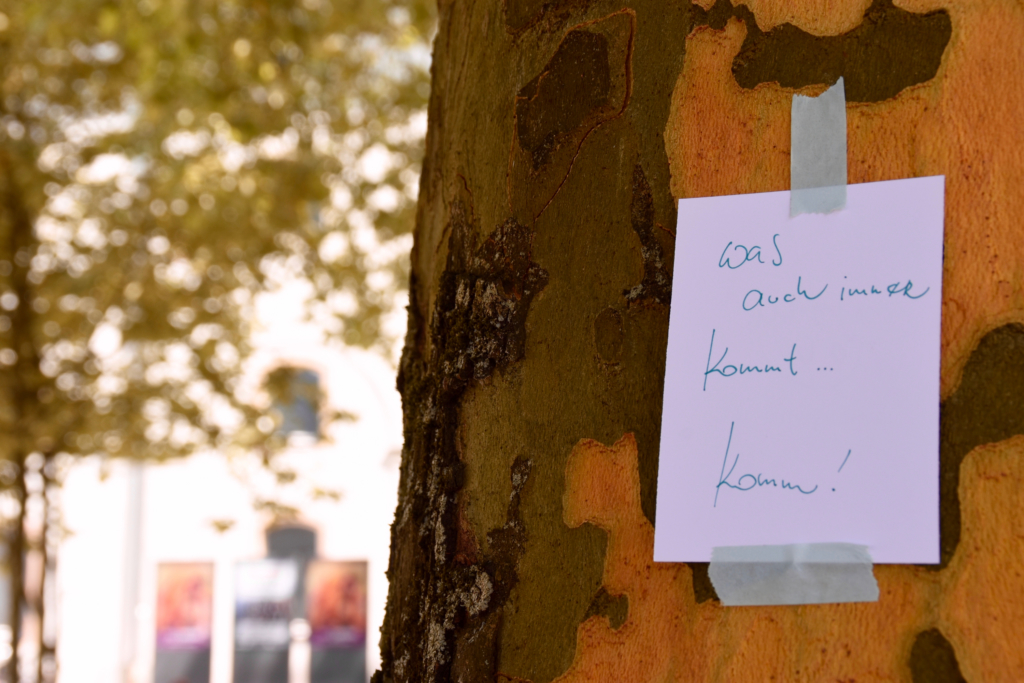 was
auch immer
kommt...
komm!